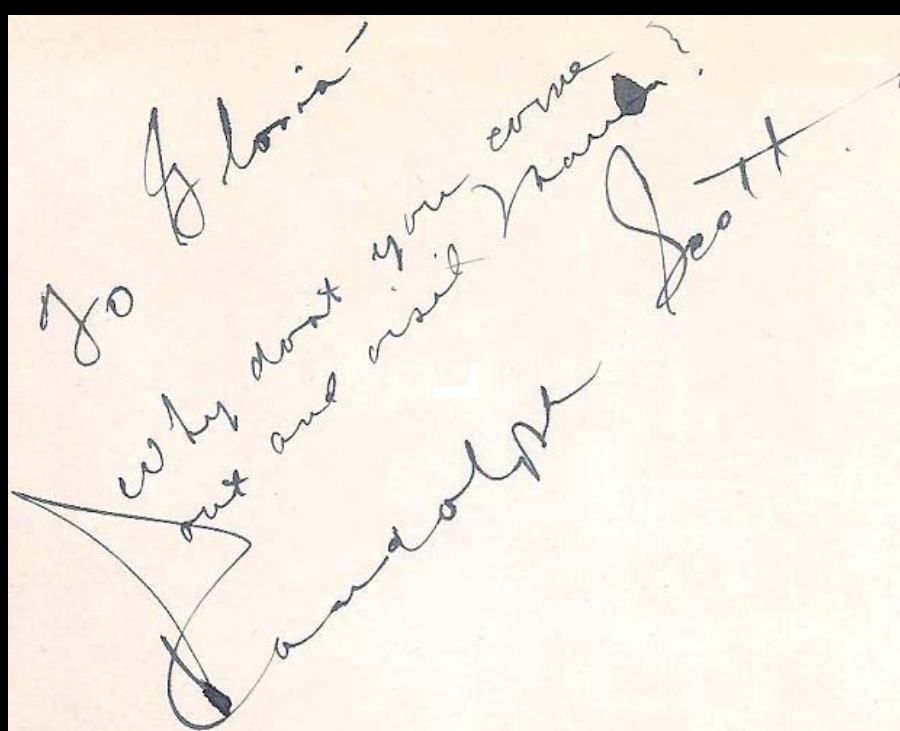 To Gloria -
Why don't you come
out and visit
Randolph Scott